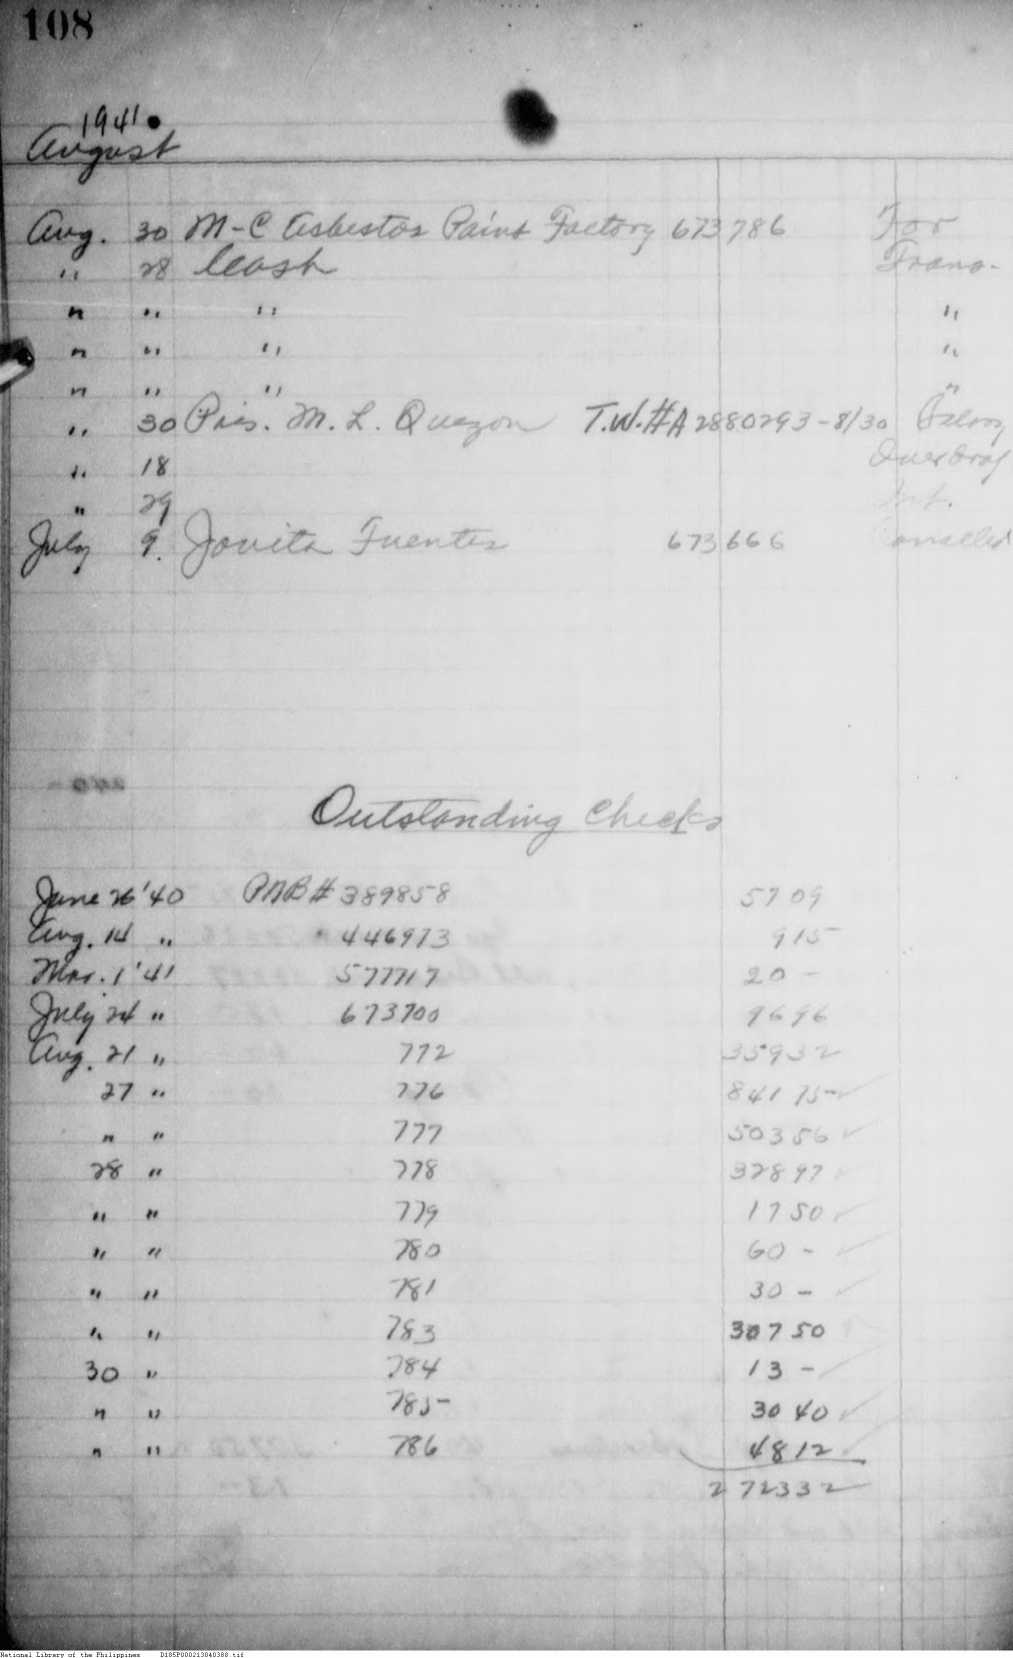 108
1941
August
Aug. 30 M-C Asbestos Paint Factory 673786 For
" 28 Cash Trans-
" " " "
" " " "
" " " "
" 30 Pres. M. L. Quezon T.W.#A2880293-8/30
" 18
" 29 Int.
July 9. Jovita Fuentes 673666 Cancelled
Outstanding Checks
June 26 '40 PNB # 389858 57 09
Aug. 14 " " 446973 9 15
Mar. 1 '41 577717 20 -
July 24 " 673700 96 96
Aug. 21 " 772 359 32
27 " 776 841 75
" " 777 503 56
28 " 778 328 97
" " 779 17 50
" " 780 60 -
" " 781 30 -
" " 783 307 50
30 " 784 13 -
" " 785 30 40
" " 786 48 12
2 723 32
National Library of the Philippines D185P000213040388.tif